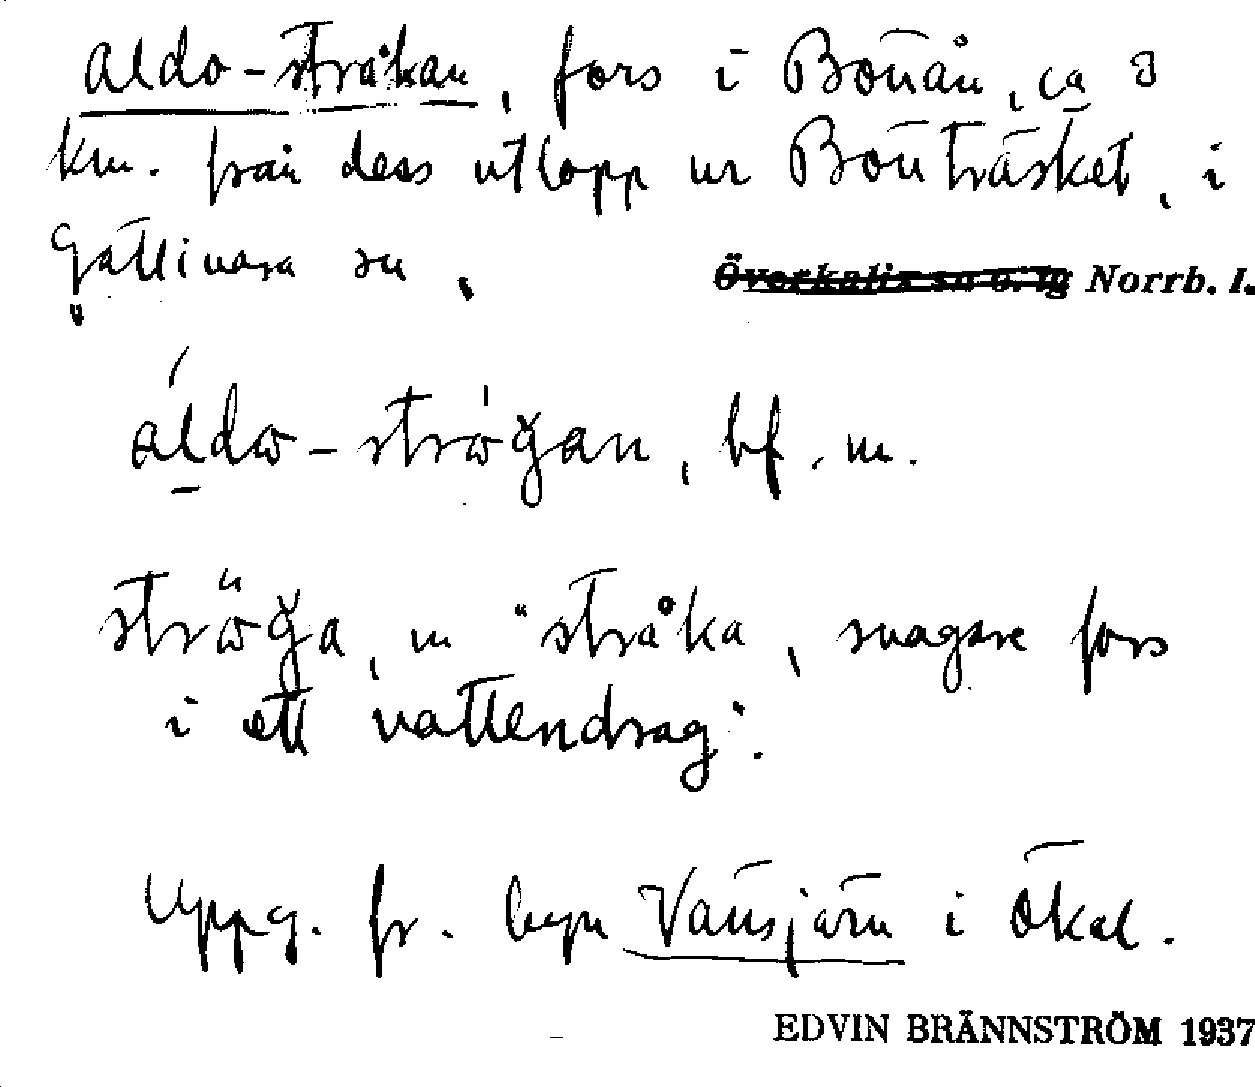 aldo-stråkan, fors i Bönån, ca 3
km. från dess utlopp ur Bönträsket, i
Gällivara sn,
Överkalix sn o. tg Norrb. l.
áldω-strω̍ğan, bf. m.
strω̈ğa, m "stråka, svagare fors
i ett vattendrag".
Uppg. fr. byn Vänsjärn i Ökal.
EDVIN BRÄNNSTRÖM 1937